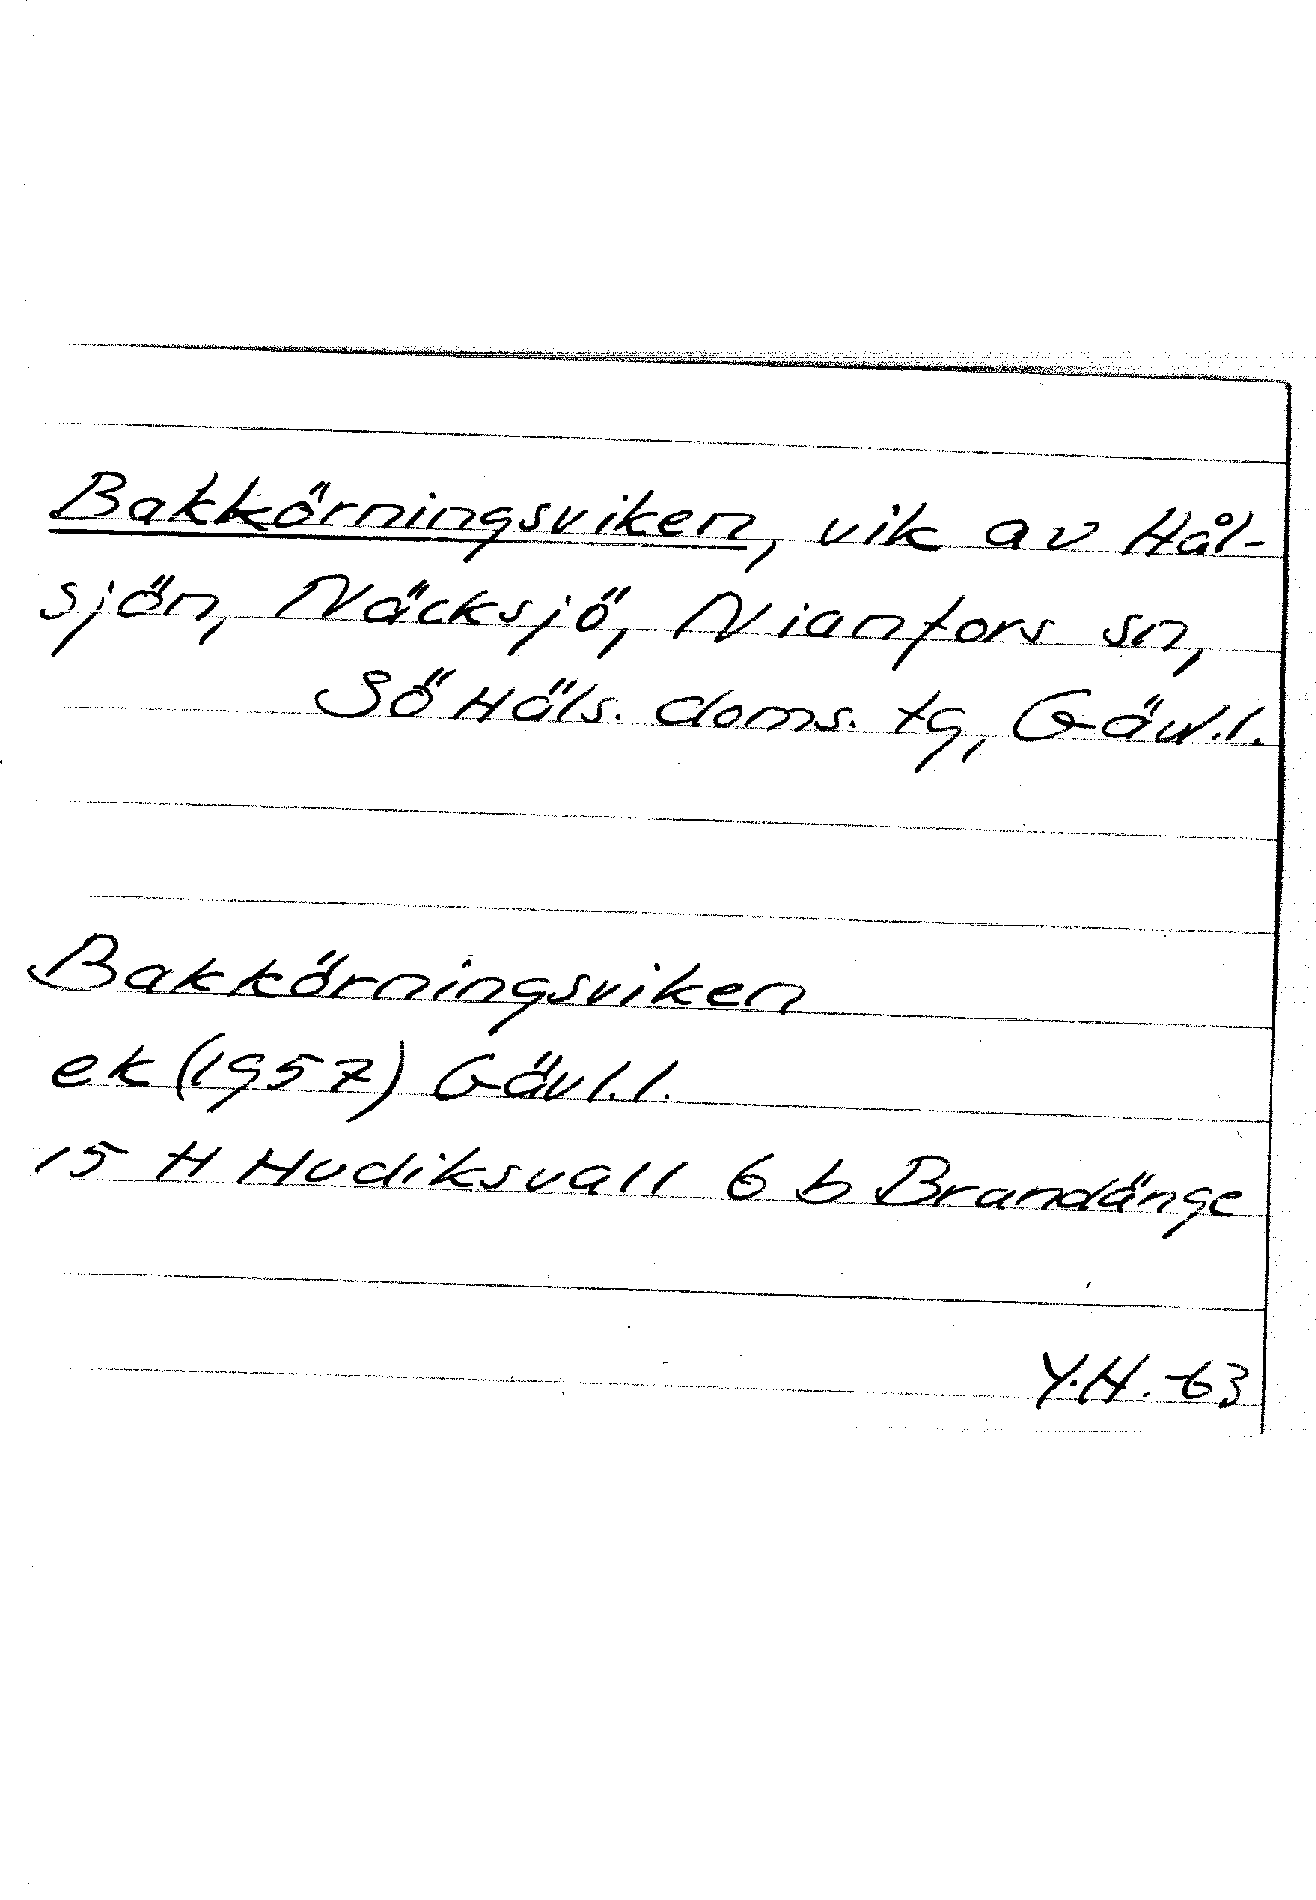 Bakkörningsviken, vik av Hål-
sjön, Näcksjö, Nianfors sn,
Sö Häls. doms. tg, Gävl.l.
Bakkörningsviken
ek (1957) Gävl.l.
15 H Hudiksvall 6 b Brandänge
Y.H. -63